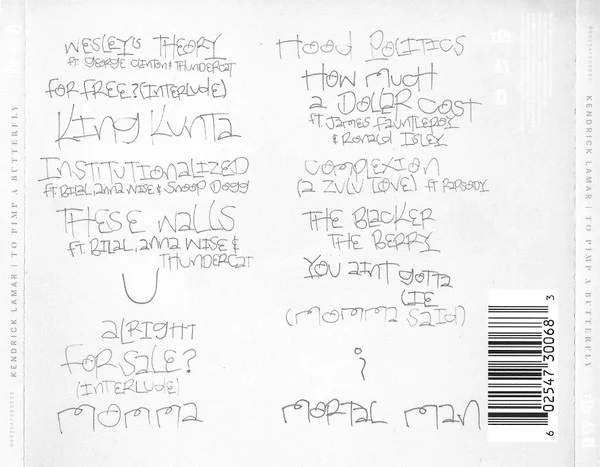 WESLEY'S THEORY
ft. GEORGE CLINTON & THUNDERCAT
FOR FREE? (INTERLUDE)
KING KUNTA
INSTITUTIONALIZED
ft. BILAL, ANNA WISE & SNOOP DOGG
THESE WALLS
ft. BILAL, ANNA WISE &
THUNDERCAT
U
ALRIGHT
FOR SALE?
(INTERLUDE)
MOMMA
HOOD POLITICS
HOW MUCH
A DOLLAR COST
ft. JAMES FAUNTLEROY
& RONALD ISLEY
COMPLEXION
(A ZULU LOVE) ft RAPSODY
THE BLACKER
THE BERRY
YOU AINT GOTTA
LIE
(MOMMA SAID)
i
MORTAL MAN
KENDRICK LAMAR | TO PIMP A BUTTERFLY
KENDRICK LAMAR | TO PIMP A BUTTERFLY
6 02547 30068 3